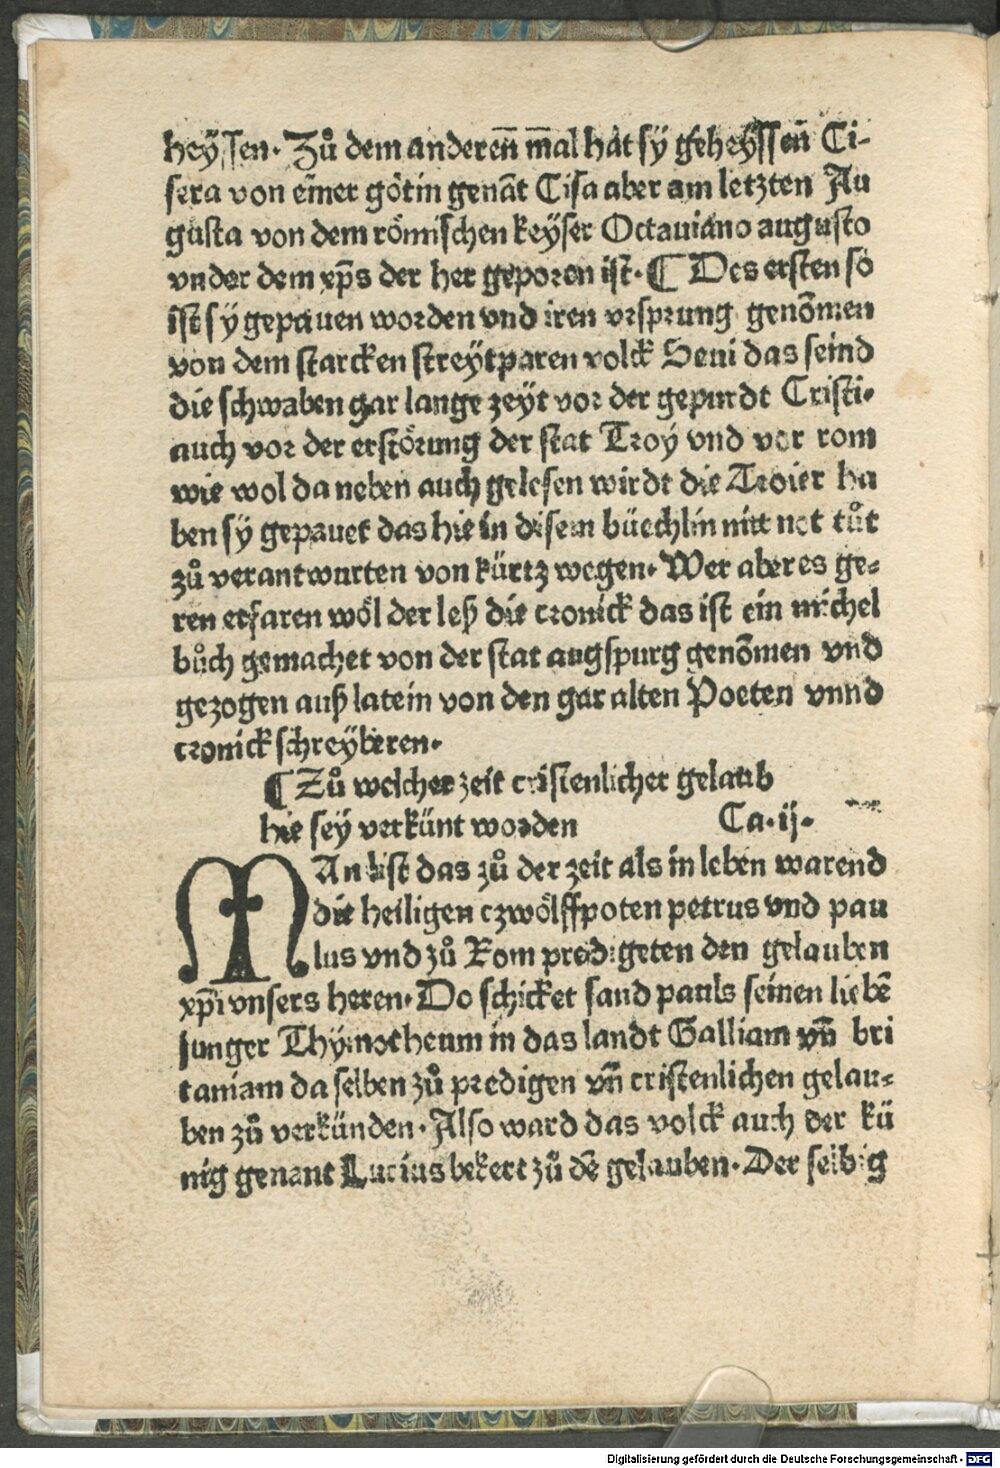 heyſſen. Zů dem anderen̄ m̄al hat ſy geheyſſen̄ Ci-
ſera von eīner götin genāt Ciſa aber am letzten Au
guſta von dem römiſchen keyſer Octauiano auguſto
vnder dem xp̄s der her geporen iſt. ¶ Des erſten ſo
iſt ſy gepauen worden vnd iren vrſprung genōmen
von dem ſtarcken ſtreytparen volck Seui das ſeind
die ſchwaben gar lange zeyt vor der gepurdt Criſti.
auch vor der erſtörung der ſtat Troy vnd vor rom
wie wol da neben auch geleſen wirdt die Troier ha
ben ſy gepauet das hie in diſem büechlin nit not tůt
zů verantwurten von kürtz wegen. Wer aber es ge-
ren erfaren wöl der leß die cronick das iſt ein michel
bůch gemachet von der ſtat augſpurg genōmen vnd
gezogen auß latein von den gar alten Poeten vnnd
cronick ſchreyberen.
¶ Zů welcher zeit criſtenlicher gelaub
hie ſey verkünt worden Ca. ij.
MAn liſt das zů der zeit als in leben warend
die heiligen czwölffpoten petrus vnd pau
lus vnd zů Rom predigeten den gelauben
xp̄i vnſers heren. Do ſchicket ſand pauls ſeinen liebē
junger Thymotheum in das landt Galliam vn̄ bri
taniam da ſelben zů predigen vn̄ criſtenlichen gelau-
ben zů verkünden. Alſo ward das volck auch der kü
nig genant Lucius bekert zů dē gelauben. Der ſelbig
Digitalisierung gefördert durch die Deutsche Forschungsgemeinschaft - DFG